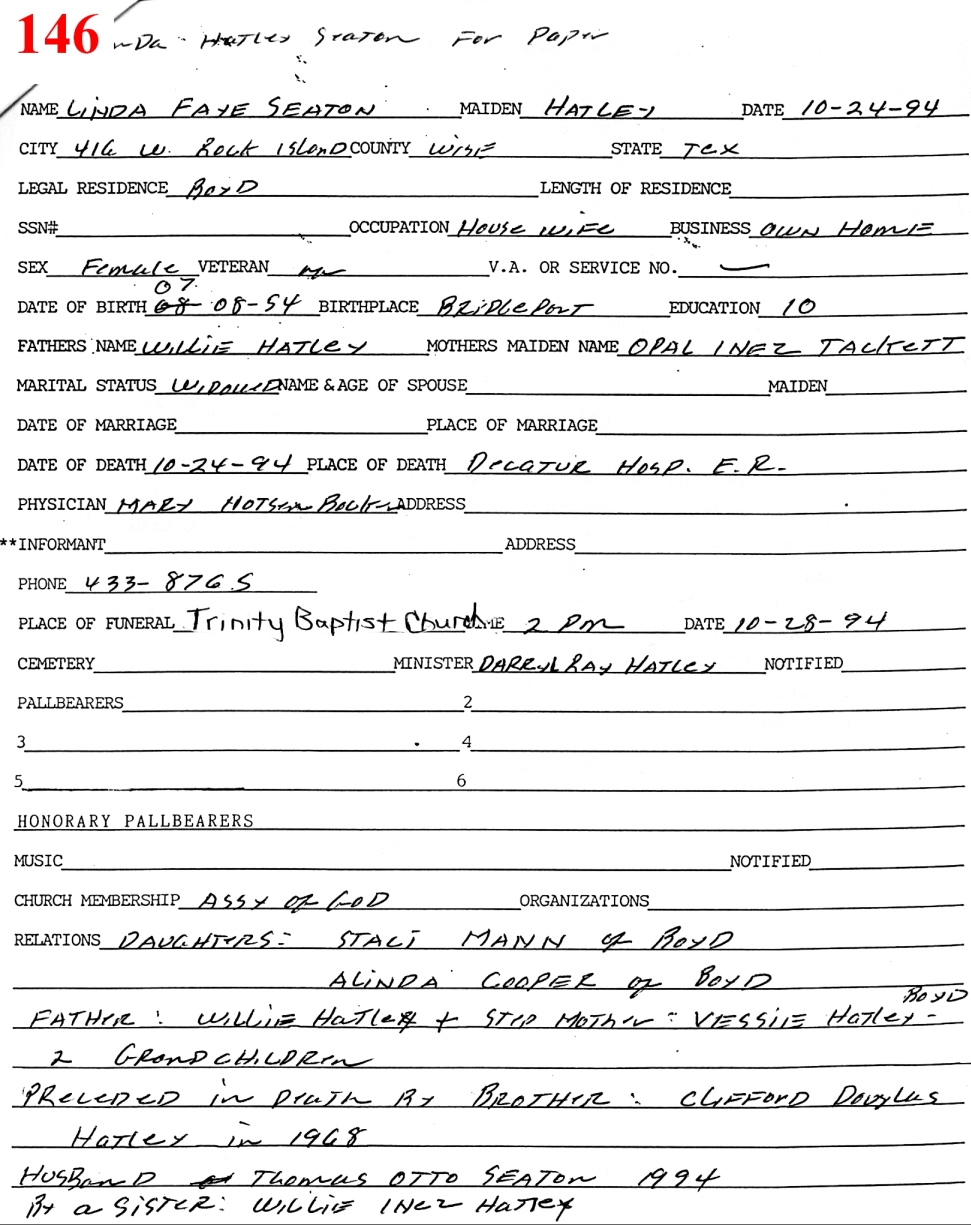 146 nDa Hatley Seaton For Paper
NAME LINDA FAYE SEATON MAIDEN HATLEY DATE 10-24-94
CITY 416 W. Rock IslanD COUNTY WISE STATE Tex
LEGAL RESIDENCE BoyD LENGTH OF RESIDENCE
SSN# OCCUPATION House wife BUSINESS OWN Home
SEX Female VETERAN V.A. OR SERVICE NO. —
07
DATE OF BIRTH 08-08-54 BIRTHPLACE BRiDgePorT EDUCATION 10
FATHERS NAME WiLLiE HATLEY MOTHERS MAIDEN NAME OPAL INEZ TACKETT
MARITAL STATUS WiDoweD NAME & AGE OF SPOUSE MAIDEN
DATE OF MARRIAGE PLACE OF MARRIAGE
DATE OF DEATH 10-24-94 PLACE OF DEATH DECATUR HOSP. E.R.
PHYSICIAN MARY ADDRESS
**INFORMANT ADDRESS
PHONE 433-8765
PLACE OF FUNERAL Trinity Baptist Church TIME 2 Pm DATE 10-28-94
CEMETERY MINISTER DARRYL RAY HATLEY NOTIFIED
PALLBEARERS 2
3 4
5 6
HONORARY PALLBEARERS
MUSIC NOTIFIED
CHURCH MEMBERSHIP ASSY OF GOD ORGANIZATIONS
RELATIONS DAUGHTERS: STACI MANN of BoyD
ALiNDA COOPER of BoyD
BoyD
FATHER: WiLLiE HaTLey + STEP MoTHer: VESSiIE HaTley-
2 GRanDCHiLDRen
PReceDeD in DeaTH By BROTHER: CLiFFORD Douglas
HaTley in 1968
HUSBanD Thomas OTTO SEATon 1994
By a SiSTER: WiLLiE INez HaTley